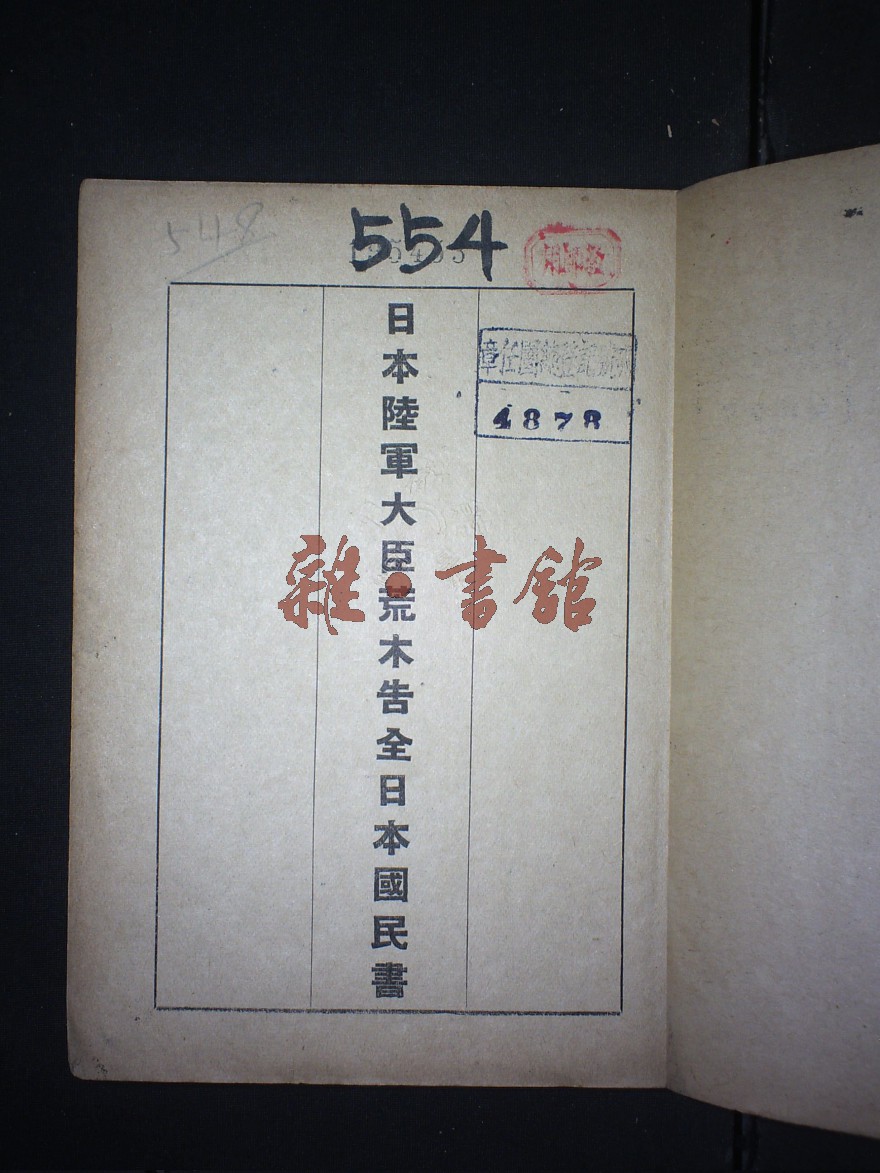 548
554
4878
日本陸軍大臣荒木告全日本國民書
雜·書館